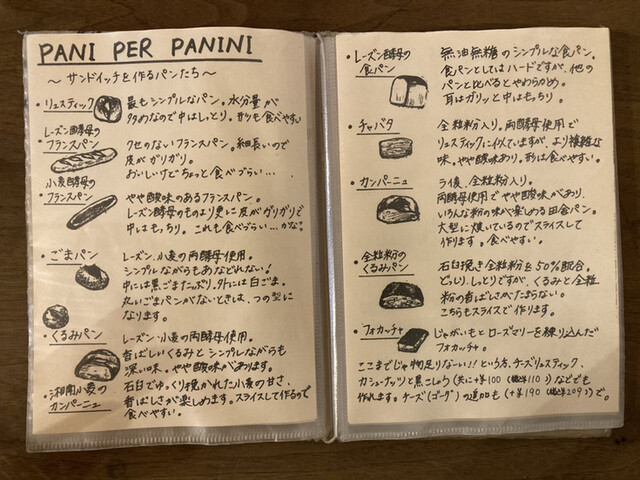 PANI PER PANINI
～サンドイッチを作るパンたち～
・リュスティック
最もシンプルなパン。水分量が
多めなので中はしっとり。耳も食べやすい
レーズン酵母の
・フランスパン
クセのないフランスパン。細長いので
皮がガリガリ。
おいしいけどちょっと食べづらい…。
小麦酵母の
・フランスパン
やや酸味のあるフランスパン。
レーズン酵母のものより更に皮がガリガリで
中はもっちり。これも食べづらい…かな。
・ごまパン
レーズン、小麦の両酵母使用。
シンプルながらもあなどれない！
中には黒ごまたっぷり。外には白ごま。
丸いごまパンがないときは、つの型に
なります。
・くるみパン
レーズン・小麦の両酵母使用。
香ばしいくるみとシンプルながらも
深い味。やや酸味があります。
・湘南小麦の
カンパーニュ
石臼でゆっくり挽かれた小麦の甘さ、
香ばしさが楽しめます。スライスして作るので
食べやすい。
・レーズン酵母の
食パン
無油無糖のシンプルな食パン。
食パンとしてはハードですが、他の
パンと比べるとやわらかめ。
耳はガリッと中はもっちり。
・チャバタ
全粒粉入り。両酵母使用で
リュスティックに似ていますが、より複雑な
味。やや酸味あり。形は食べやすい。
・カンパーニュ
ライ麦、全粒粉入り。
両酵母使用でやや酸味があり、
いろんな粉の味が楽しめる田舎パン。
大型に焼いているのでスライスして
作ります。食べやすい。
・全粒粉の
くるみパン
石臼挽き全粒粉を50%配合。
どっしり、しっとりですが、くるみと全粒
粉の香ばしさがたまらない。
こちらもスライスで作ります。
・フォカッチャ
じゃがいもとローズマリーを練り込んだ
フォカッチャ。
ここまでじゃ物足りない！！という方、チーズリュスティック、
カシューナッツと黒こしょう（共に+¥100（税込¥110））なども
作れます。チーズ（ゴーダ）の追加も（+¥190（税込¥209））で。